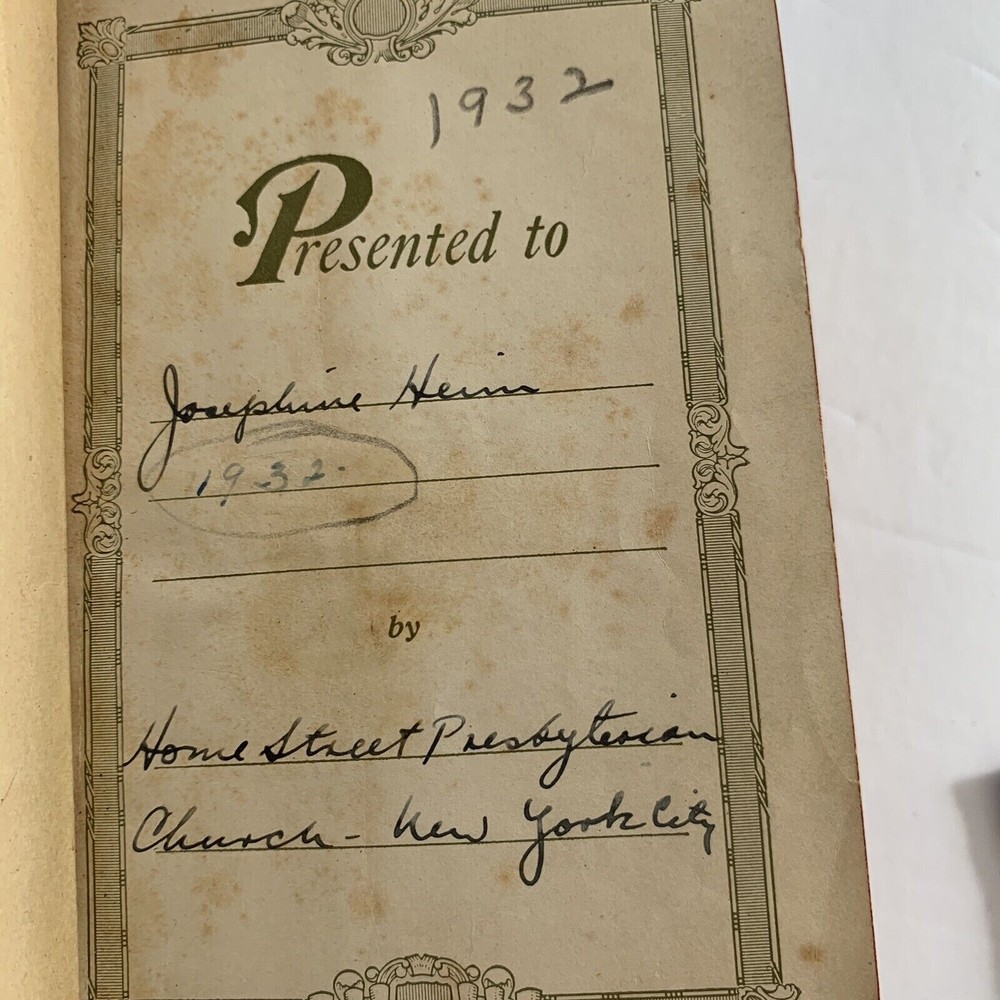 1932
Presented to
Josephine Heim
1932.
by
Home Street Presbyterian
Church - New York City